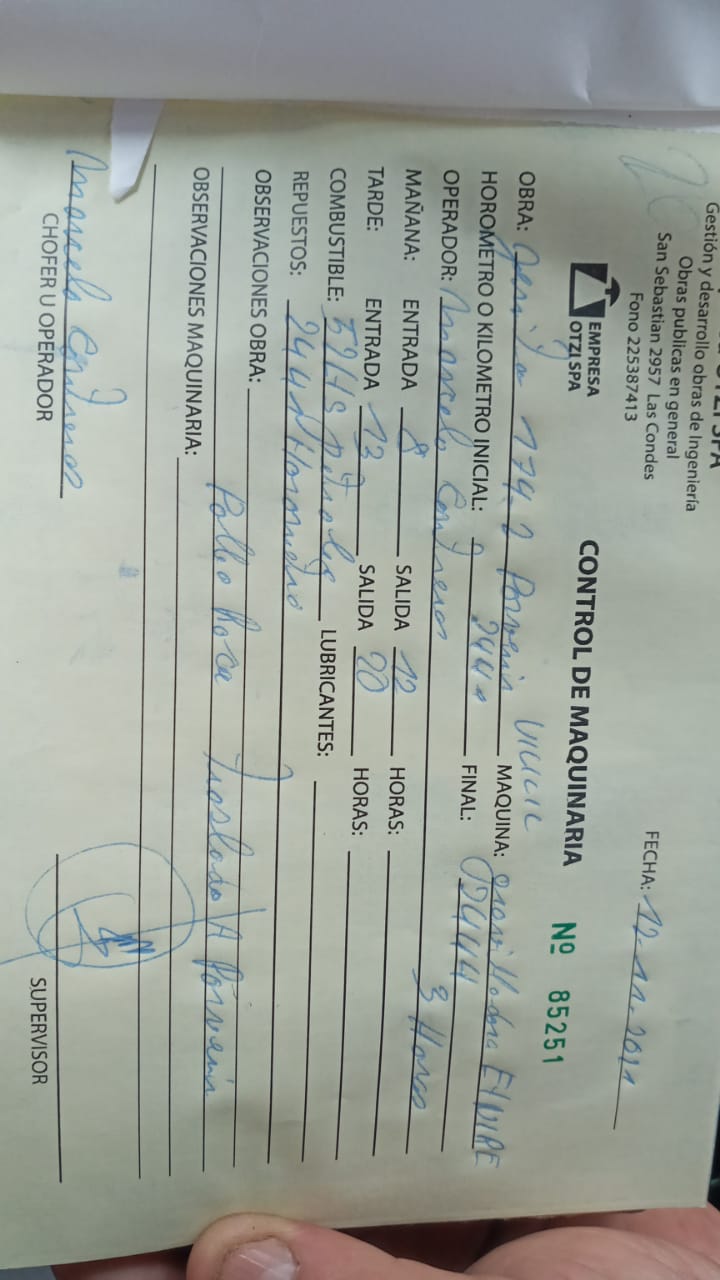 OTZI SPA
Gestión y desarrollo obras de Ingeniería
Obras publicas en general
San Sebastian 2957 Las Condes
Fono 225387413
FECHA: 12.11.2021
EMPRESA
OTZI SPA
CONTROL DE MAQUINARIA
Nº 85251
OBRA: 174-2 Porvenir MAQUINA: gravilladora
HOROMETRO O KILOMETRO INICIAL: FINAL: 02444
OPERADOR: Marcelo Contreras 3 Horas
MAÑANA: ENTRADA 8 SALIDA 12 HORAS:
TARDE: ENTRADA 13 SALIDA 20 HORAS:
COMBUSTIBLE: LUBRICANTES:
REPUESTOS: 2441 Horometro
OBSERVACIONES OBRA:
Roca Traslado A Porvenir
OBSERVACIONES MAQUINARIA:
Marcelo Contreras
CHOFER U OPERADOR
SUPERVISOR